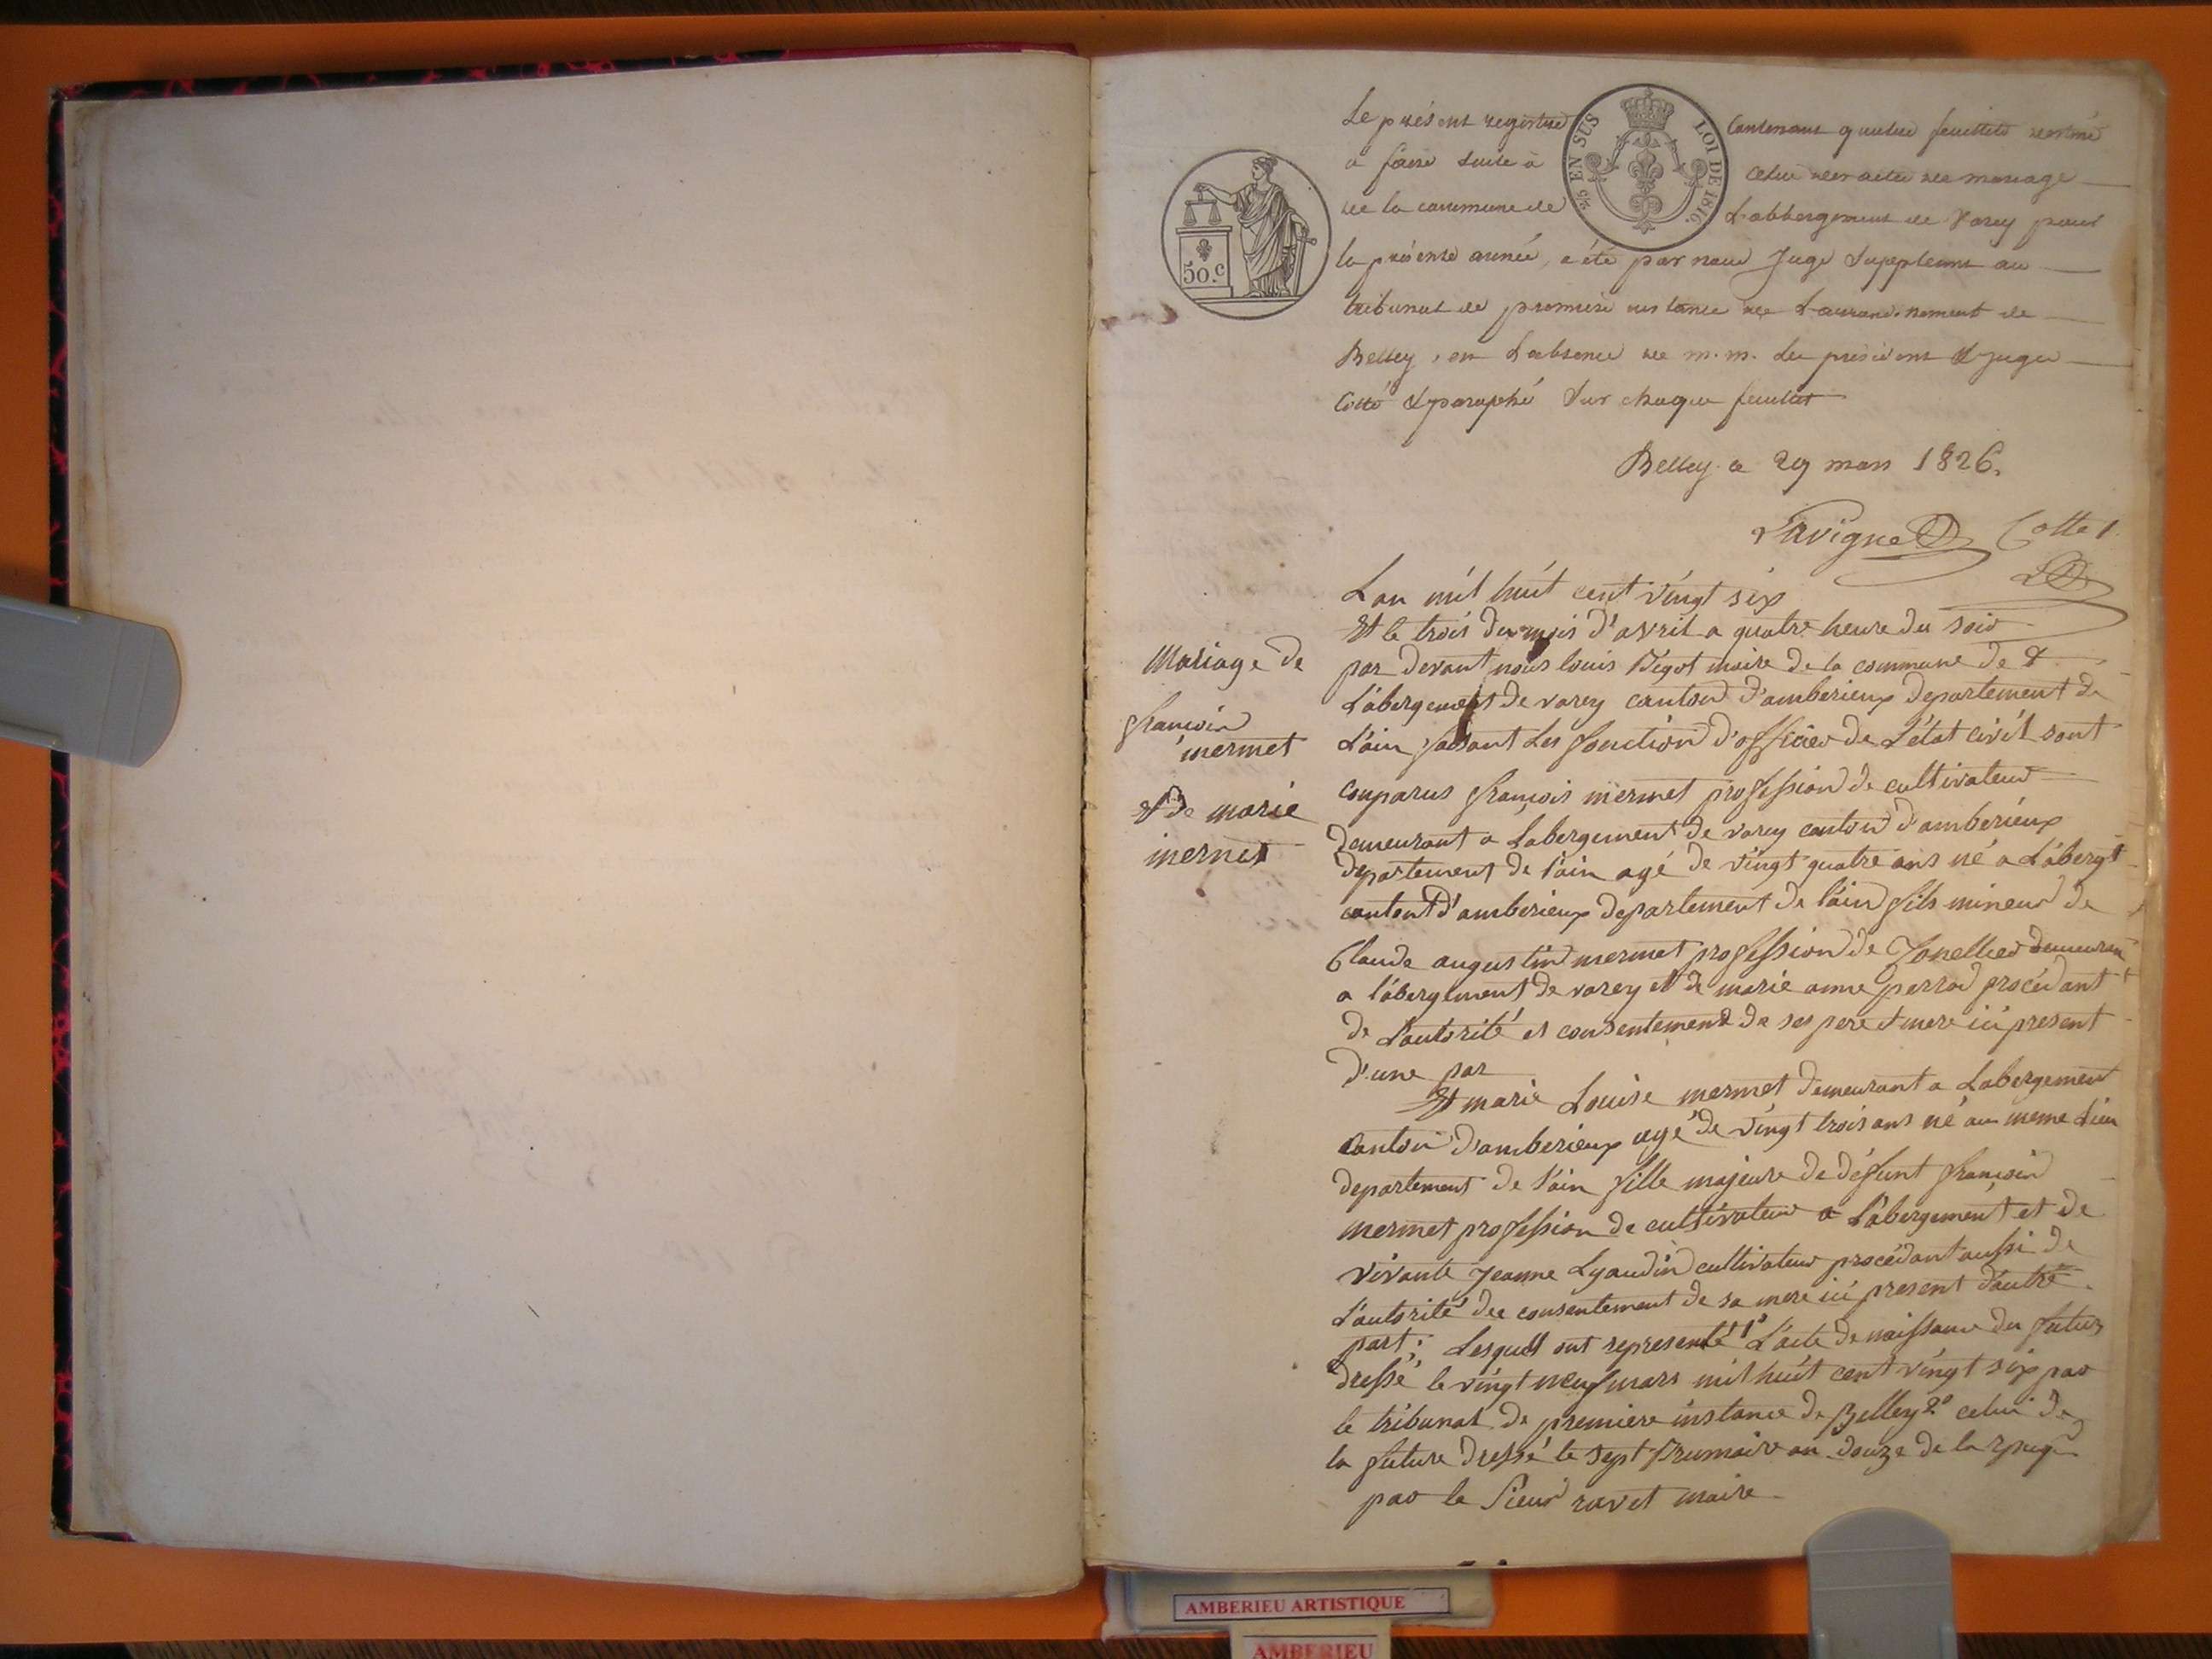 Le présent registre Contenant quatre feuillets destiné
à faire suite à celui des actes de mariage
de la commune de L'abbergement de Varey pour
la présente année, a été par nous Juge Suppléant au
tribunal de première instance de L'arrondissement de
Belley, en L'absence de m.m. les présidens & Juges
Cotté & paraphé Sur chaque feuillet
Belley ce 29 mars 1826.
Lavigne Cotte 1.
50.c
25 EN SUS LOI DE 1816.
Mariage de
françois
mermet
& de marie
mermet
L'an mil huit cent vingt six
Et le trois du mois d'avril a quatre heure du soir
par devant nous louis Bigot maire de la commune de
L'abergement de varey canton d'amberieux departement de
L'ain faisant Les fonction d'officier de L'état civil sont
comparus françois mermet profession de cultivateur
demeurant a Labergement de varey canton d'amberieux
departement de l'ain agé de vingt quatre ans né a L'abergt
canton d'amberieux departement de l'ain fils mineur de
Claude augustin mermet profession de Tonellier demeurant
a l'abergement de varey et de marie anne perrod procédant
de L'autorité et consentement de ses pere & mere ici present
d'une par
Et marie Louise mermet demeurant a Labergement
canton d'amberieux agé de vingt trois ans né au meme Lieu
departement de l'ain fille majeure de défunt françois
mermet profession de cultivateur a L'abergement et de
vivante Jeanne Lyaudin cultivateur procédant aussi de
L'autorité de consentement de sa mere ici present d'autre
part; Lesquels ont representé 1° L'acte de naissance du futur
dressé le vingt neuf mars mil huit cent vingt six par
le tribunal de premiere instance de Belley 2° celui de
la future dressé le sept Brumaire an douze de la
par le Sieur ravet maire
AMBERIEU ARTISTIQUE
AMBERIEU